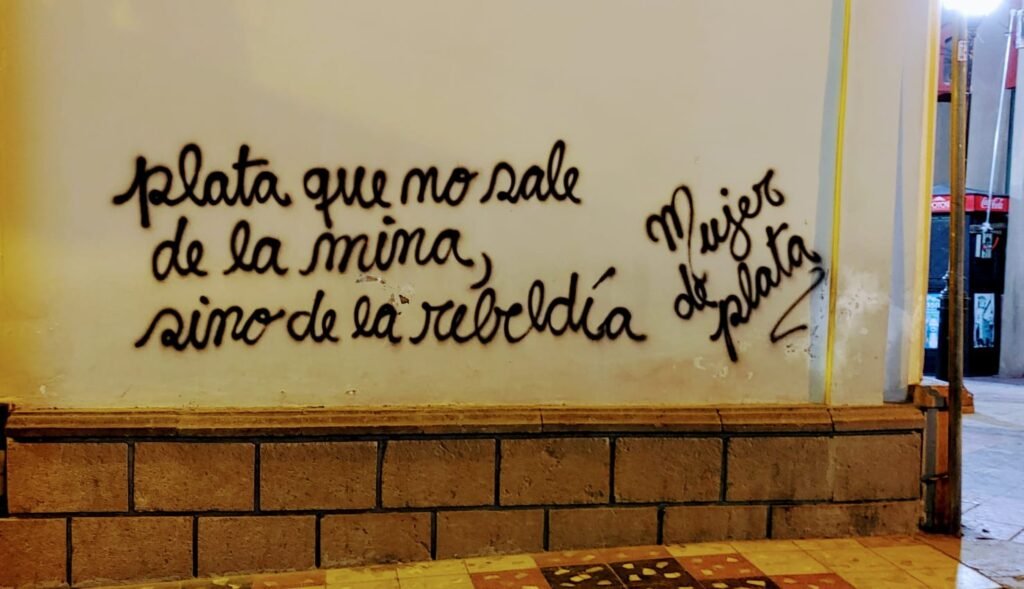 plata que no sale
de la mina,
sino de la rebeldía
Mujer
de
plata
Coca-Cola